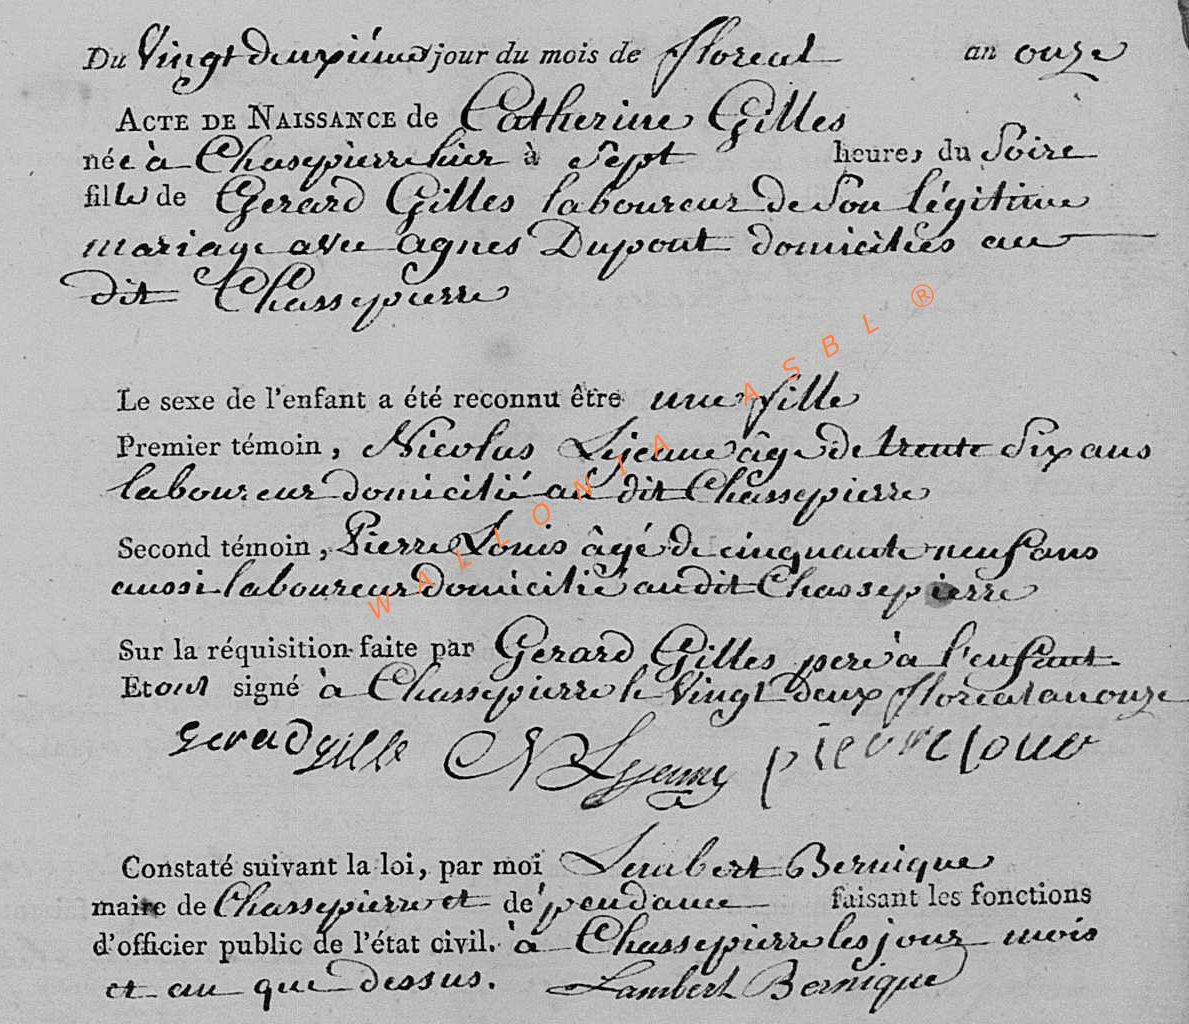 Du Vingt deuxième jour du mois de floreal an onze
ACTE DE NAISSANCE de Catherine Gilles
née à Chassepierre hier à Sept heures du Soire
fille de Gerard Gilles laboureur de Son légitime
mariage avec agnes Dupont domiciliés au
dit Chassepierre
Le sexe de l'enfant a été reconnu être une fille
Premier témoin, Nicolas Lejeune âgé de trente Six ans
laboureur domicilié au dit Chassepierre
Second témoin, Pierre Louis âgé de cinquante neuf ans
aussi laboureur domicilié audit Chassepierre
Sur la réquisition faite par Gerard Gilles pere à l'enfant
Et ont signé à Chassepierre le Vingt deux floreal an onze
gerad gille N Lejeune pierre loui
Constaté suivant la loi, par moi Lambert Bernique
maire de Chassepierre et dépendance faisant les fonctions
d'officier public de l'état civil. à Chassepierre les jour mois
et an que dessus. Lambert Bernique
WALLONIA ASBL ®